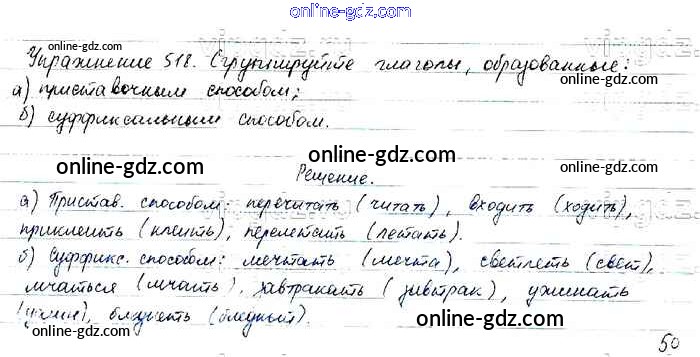 online-gdz.com
online-gdz.com
Упражнение 518. Сгруппируйте глаголы, образованные:
а) приставочным способом;
online-gdz.com
б) суффиксальным способом.
online-gdz.com
online-gdz.com
Решение.
online-gdz.com
а) Пристав. способом: перечитать (читать), входить (ходить),
приклеить (клеить), перелетать (летать).
online-gdz.com
б) Суффикс. способом: мечтать (мечта), светлеть (свет),
online-gdz.com
мчаться (мчать), завтракать (завтрак), ужинать
(ужин), бледнеть (бледный).
online-gdz.com
50
online-gdz.com